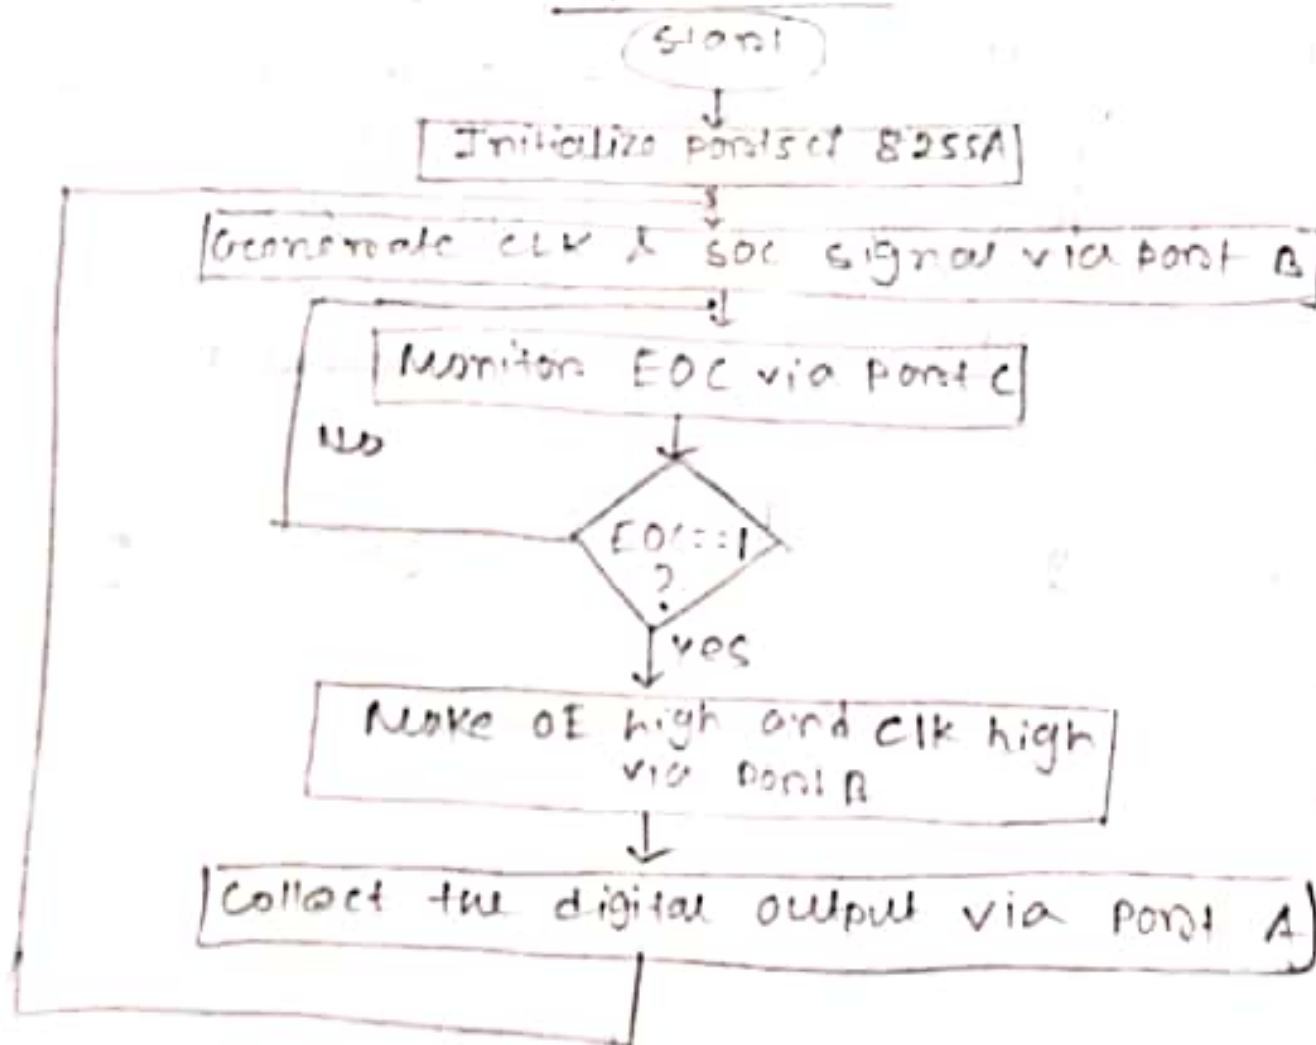 Start
Initialize ports of 8255A
Generate CLK & SOC signal via port B
Monitor EOC via port C
No
EOC==1
?
yes
Make OE high and Clk high
via port B
Collect the digital output via port A